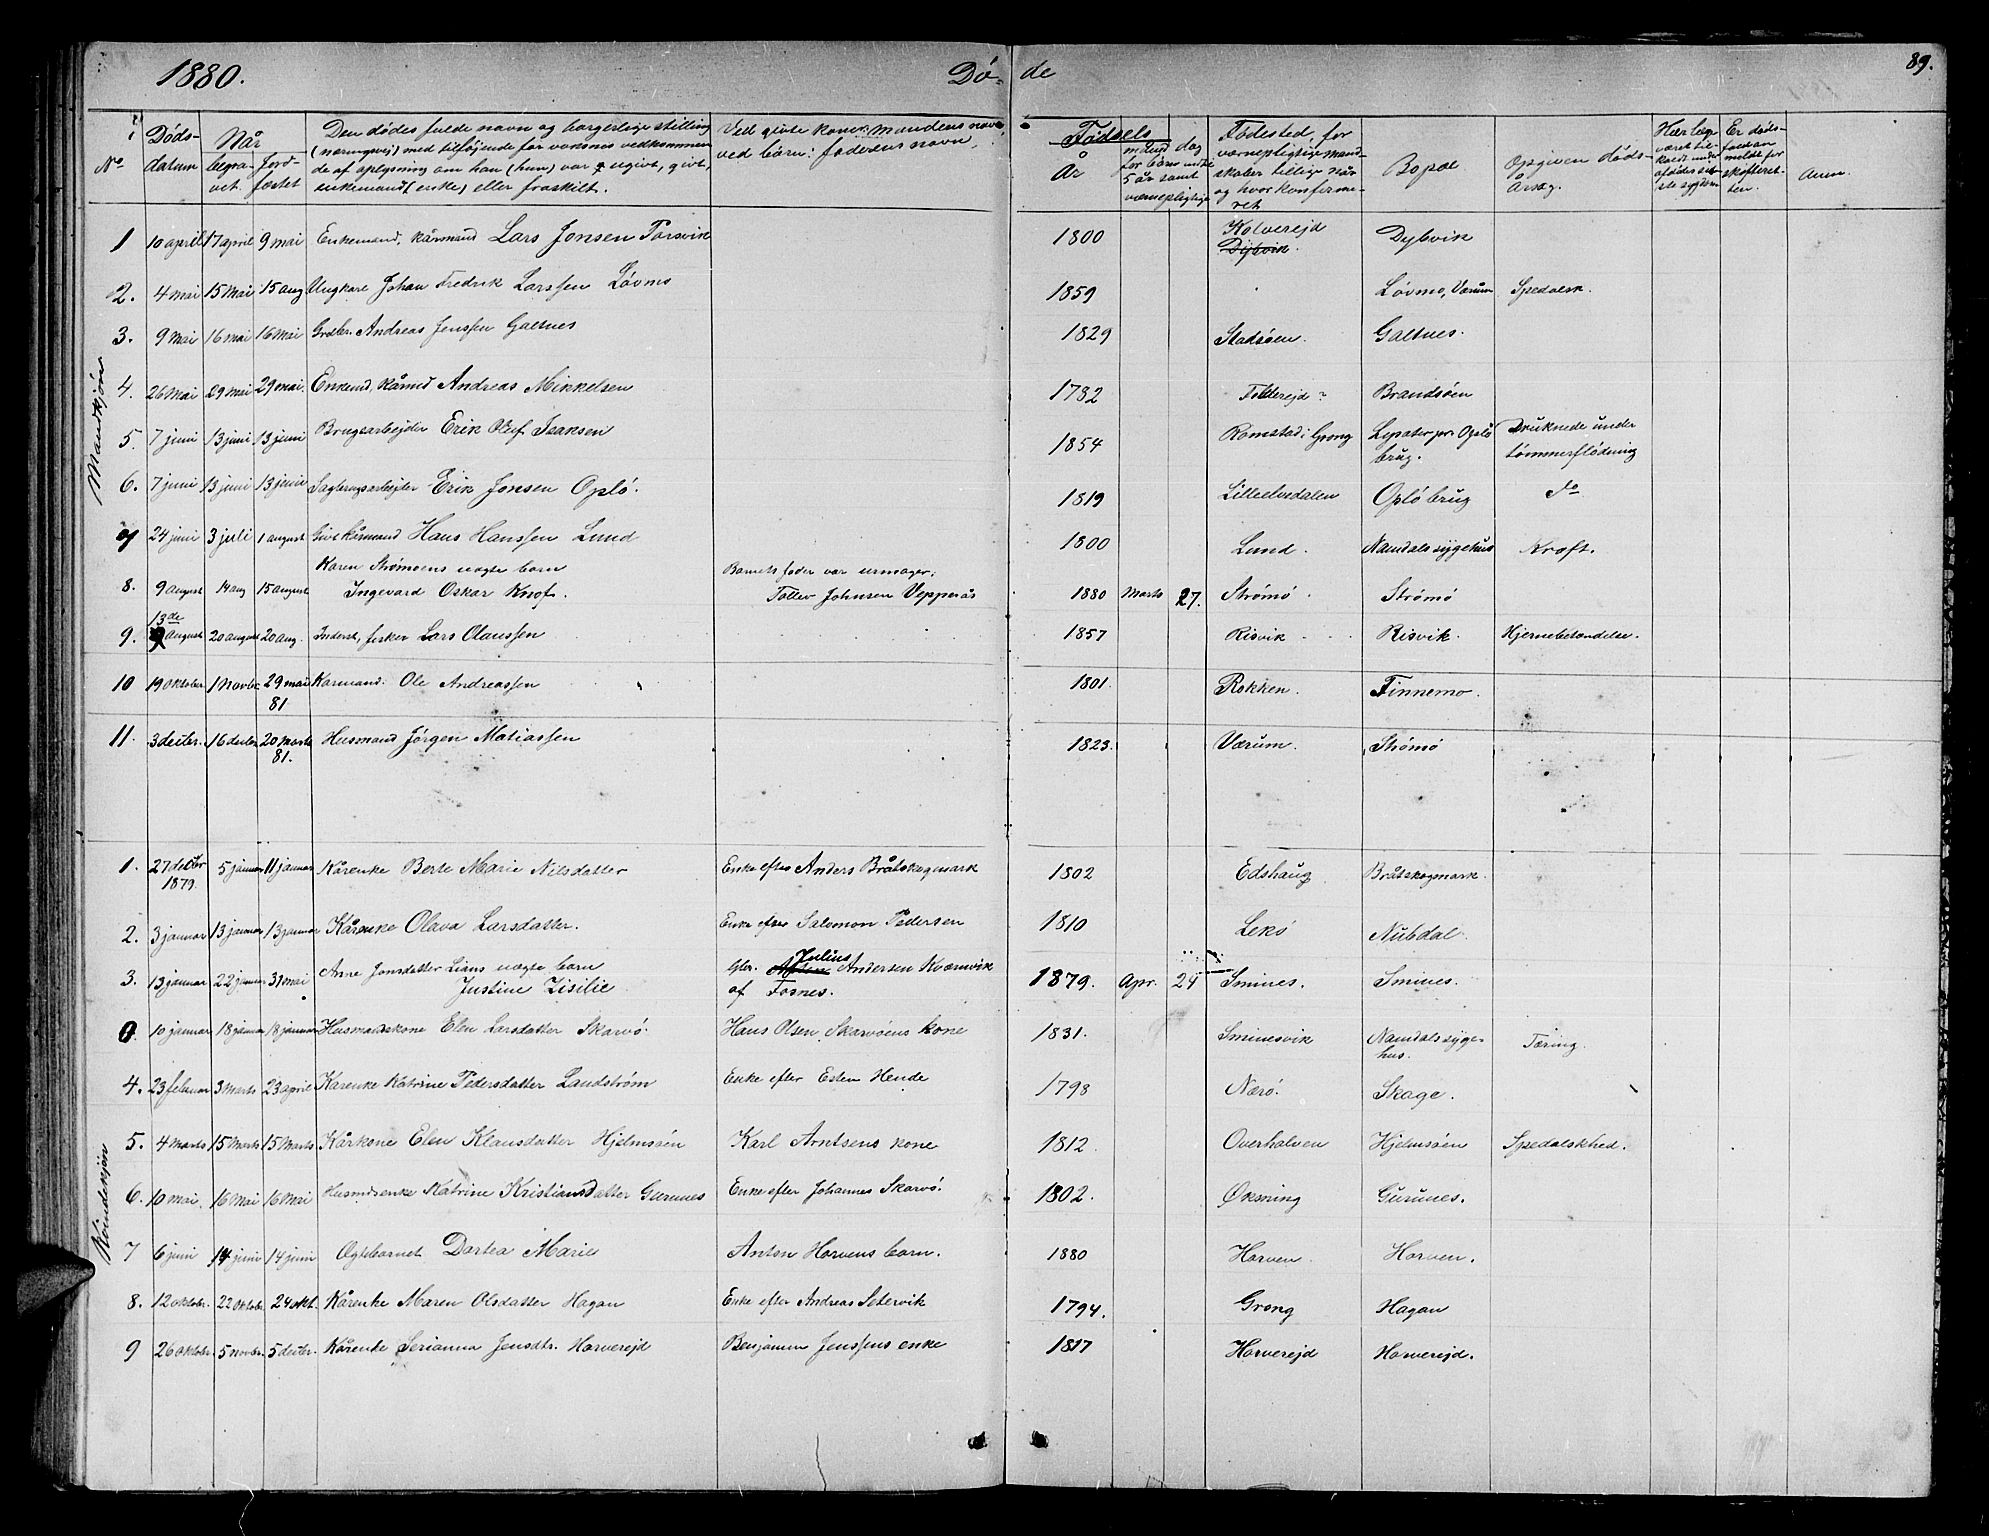 1880. Dø- de 89.
No. Døds- datum Når begra- vet. Jord- fæstet
Den dødes fulde navn og borgerlige stilling (næringsvej) med tilføjende for voksnes vedkommen de af oplysning om han (hun) var ugivt, givt, enkemand (enke) eller fraskilt.
Ved givte koner: mandens navn, ved børn: faderens navn.
Fødsels År måned dag for børn under 5 år samt værnepligtige
Fødested, for værnepligtige mand- skaber tillige når og hvor konfirme- ret
Bopæl
Opgiven døds- årsag.
Er døds- faldet an meldt for skifteret- ten.
Anm.
Mandkjøn
1 10 april 17 april 9 mai Enkemand, kårmand Lars Jonsen Torsvik 1800 Kolverejd Dybvik. Dybvik
2. 4 mai 15 mai 15 aug Ungkare Johan Fredrik Larssen Løvmo 1859 Løvmo, Værum Spedalsk.
3. 9 mai 16 mai 16 mai Grdbr. Andreas Jenssen Galtnes 1829 Stadsøen. Galtnes.
4. 26 mai 29 mai 29 mai. Enkemd, kårmd Andreas Mikkelsen 1782 Folderejd? Brandsøen
5. 7 juni 13 juni 13 juni Brugsarbejder Erik Oluf Isaksen 1854 Romstad i Grong Opslø brug. Druknede under tømmerflødning
6. 7 juni 13 juni 13 juni Sagbrugsarbejder Erik Jonsen Oplø. 1819 Lilleelvedalen Opløbrug do
7 24 juni 3 juli 1 august Givt kårmand Hans Hanssen Lund 1800 Lund. Namdals sygehus Kræft.
8. 9 august 14 aug 15 august Karen Strømøens uægte barn Ingevard Oskar Knof. Barnets fader var urmager, Tollev Johnsen Vepperås 1880 Marts 27. Strømø Strømø
9. 13de 9 august 20 august 20 aug. Inderst, fisker Lars Olaussen 1857 Risvik Risvik. Hjernebetændelse.
10 19 oktober 1 Novbr 29 mai 81 Karmand. Ole Andreassen 1801. Rokken. Finnemo.
11. 3 decbr. 16 decbr 20 Marts 81. Husmand Jørgen Matiassen 1823. Værum. Strømø
Kvindekjøn
1. 27 decbr 1879. 5 januar 11 januar Kårenke Berte Marie Nilsdatter Enke efter Anders Bråtskogmark 1802 Edshaug Bråtskogmark.
2. 3 januar 13 januar 13 januar Kårenke Olava Larsdatter. Enke efter Salomon Pedersen 1810 Lekø Nubdal.
3. 13 januar 22 januar 31 mai Anne Jonsdatter Lians uægte barn Justine Zisilie. Julius Andersen Kvernvik af Fosnes. 1879. Apr. 24 Smines. Smines.
0. 10 januar 18 januar 18 januar Husmandskone Elen Larsdatter Skarvø. Hans Olsen Skarvøens kone 1831. Sminesvik Namdals syge- hus. Tæring.
4. 23 februar 3 Marts 23 april Karenke Katrine Pedersdatter Landstrøm Enke efter Esten Hende 1798 Nærø. Skage.
5. 4 Marts 15 Marts 15 Marts Kårkone Elen Klausdatter Hjelmsøen Karl Arntsens kone 1812 Overhalven Hjelmsøen Spedalskhed.
6. 10 mai. 16 Mai 16 Mai Husmdsenke Katrine Kristiansdatter Gurunes Enke efter Johannes Skarvø. 1802. Øksning Gurunes.
7 6 juni 14 juni 14 juni Ægtebarnet Dortea Marie Anton Horvens barn. 1880 Horven. Horven.
8. 12 oktobr. 22 oktobr. 24 okt. Kårenke Maren Olsdatter Hagan Enke efter Andreas Setervik 1794. Grong Hagan
9 26 oktobr. 5 novbr. 5 decbr. Kårenke Serianna Jensdtr. Horverejd Benjamin Jenssens enke 1817 Horverejd Horverejd.